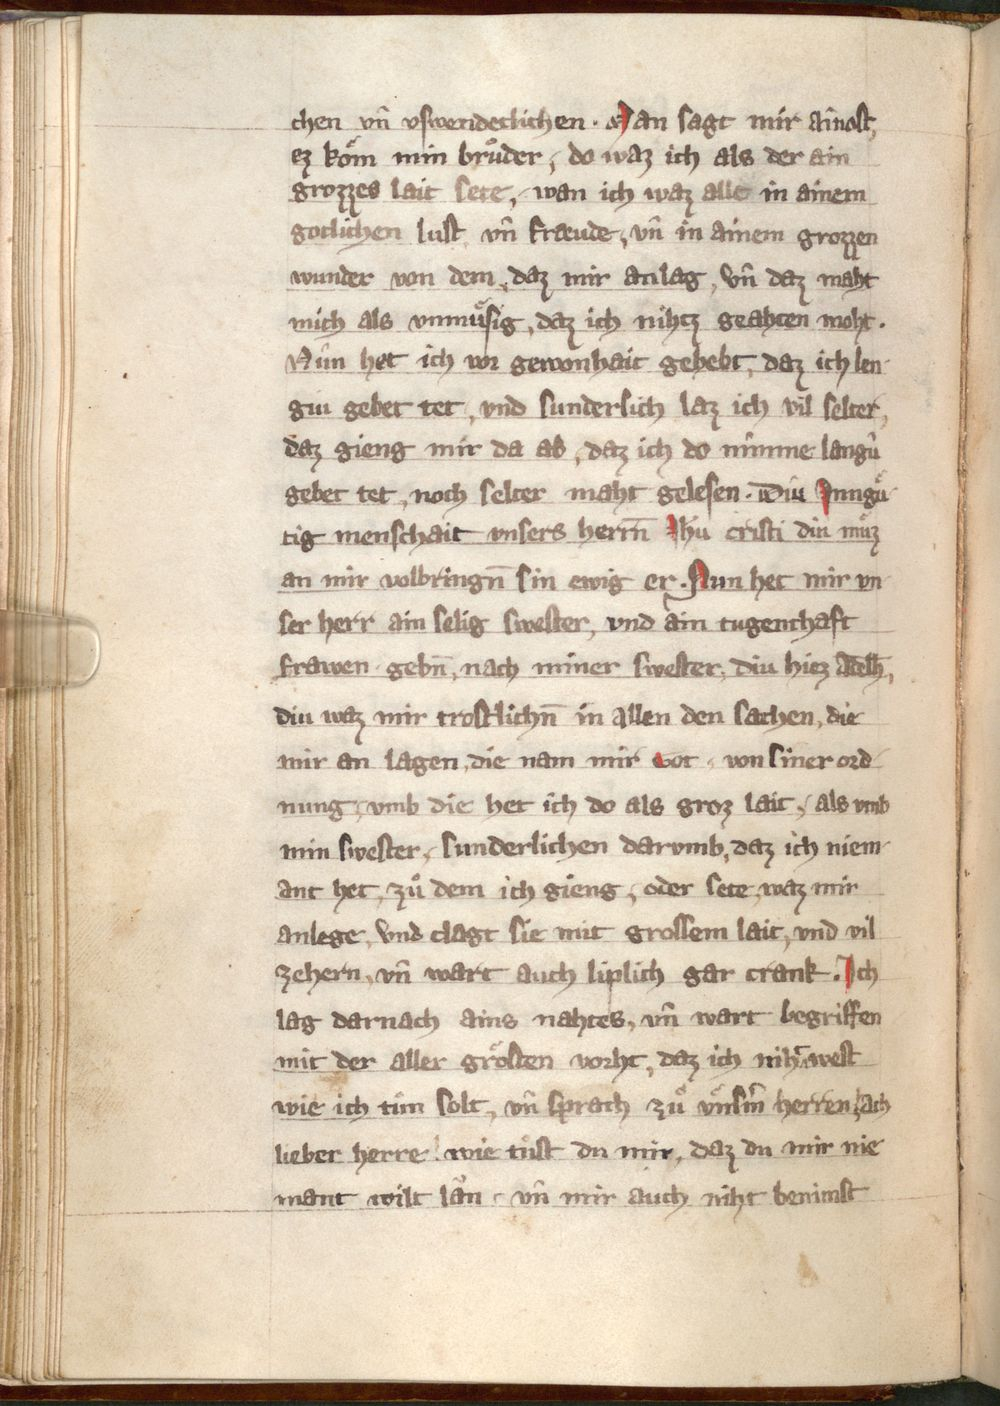 chen vn̄ vswendeclichen · Man sagt mir ainost,
ez koͤm min bruͦder, do waz ich als der ain
grozzes lait sete, wan ich waz alle in ainem
gotlichen lust vn̄ fraeude, vn̄ in ainem grozzen
wunder von dem, daz mir anlag, vn̄ daz maht
mich als vnmuͤsig, daz ich nihtz geahten moht.
Nûn het ich vor gewonhait gehebt, daz ich len-
giu gebet tet, vnd sunderlich laz ich vil selter,
daz gieng mir da ab, daz ich do nimme langiu
gebet tet, noch selter maht gelesen. Diu Innguͤ-
tig menschait vnsers herrn̄ Jh̄u cristi diu muͤz
an mir volbringn̄ sin ewig er. Nun het mir vn-
ser herr ain selig swester, vnd ain tugenthaft
frawen gebn̄, nach miner swester, diu hiez Adelh̄,
diu waz mir trostlichn̄ in allen den sachen, die
mir an lagen, die nam mir Got von siner ord-
nung, vmb die het ich do als groz lait, als vmb
min swester, sunderlichen darvmb, daz ich niem-
ant het, zuͦ dem ich gieng, oder sete, waz mir
anlege, vnd clagt sie mit grossem lait, vnd vil
zehern, vn̄ wart auch liplich gar crank. Ich
lag darnach ains nahtes, vn̄ wart begriffen
mit der aller groͤsten vorht, daz ich niht west
wie ich tuͦn solt, vn̄ sprach zuͦ vnsm̄ herren, ach
lieber herre wie tuͦst du mir, daz du mir nie
mant wilt lân vn̄ mir auch niht benimst